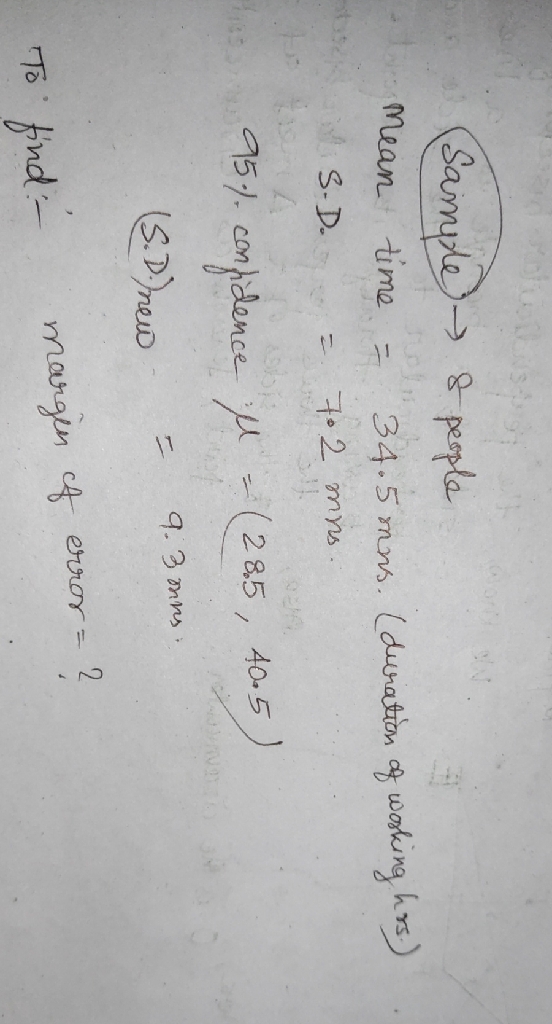 Sample → 8 people
Mean time = 34.5 mns. (duration of working hrs.)
S.D. = 7.2 mns.
95%. confidence μ = (28.5, 40.5)
(S.D)new = 9.3 mns.
To find:- margin of error = ?